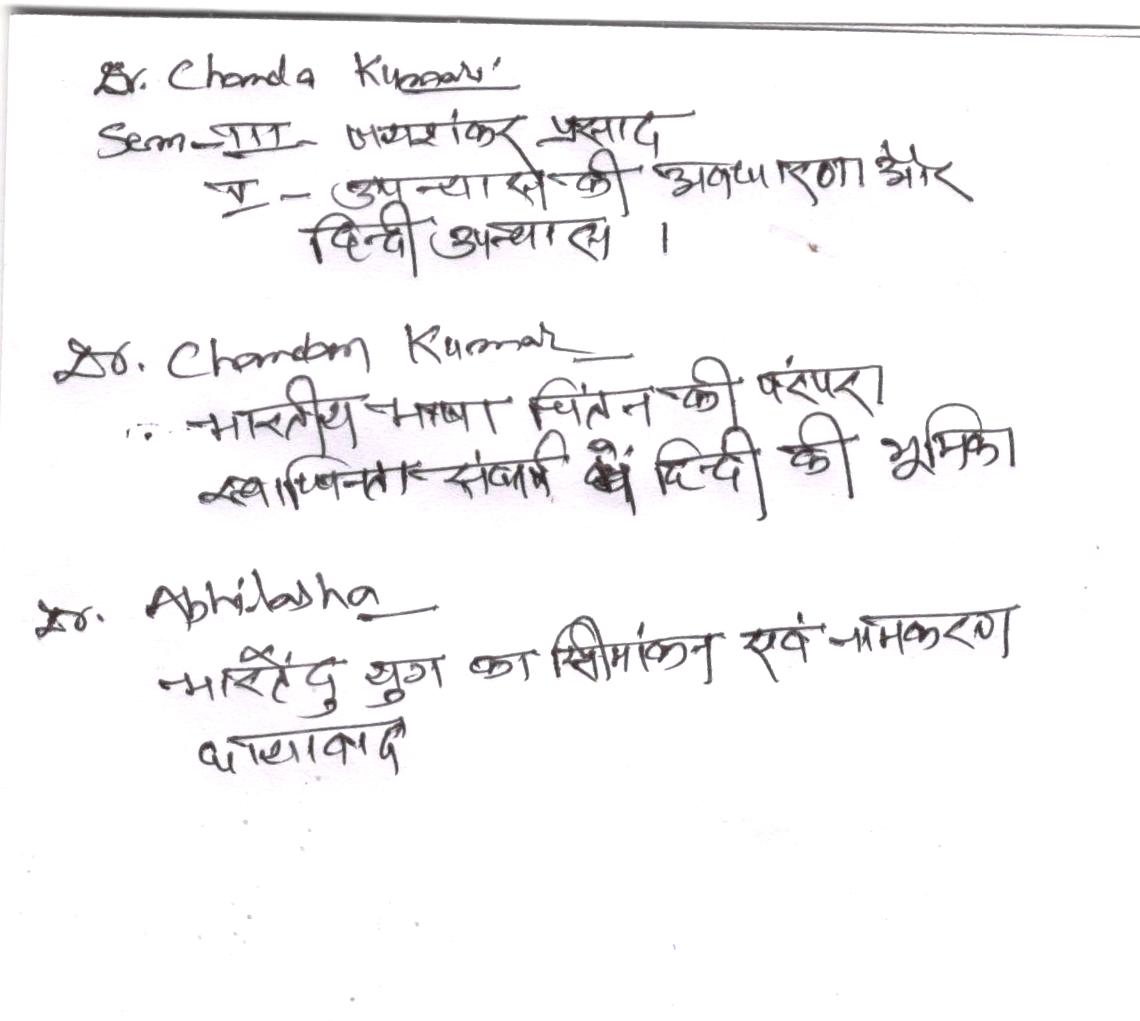 Dr. Chanda Kumari
Sem-III- जयशंकर प्रसाद
V - उपन्यास की अवधारणा और
हिन्दी उपन्यास ।
Dr. Chandan Kumar
भारतीय भाषा चिंतन की परंपरा
स्वाधिनता संघर्ष में हिन्दी की भूमिका
Dr. Abhilasha
भारतेंदु युग का सीमांकन एवं नामकरण
छायावाद